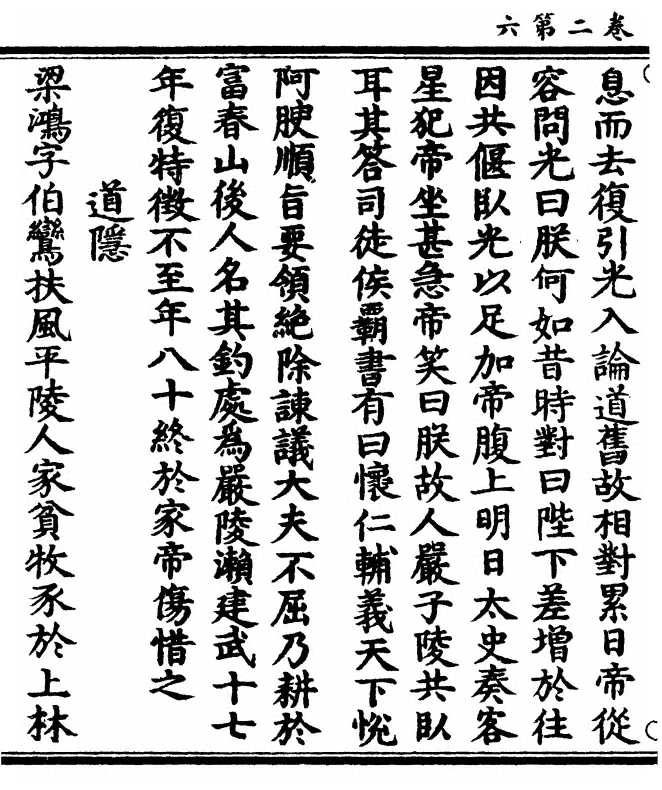 卷二第六
息而去復引光入論道舊故相對累日帝從
容問光曰朕何如昔時對曰陛下差增於往
因共偃臥光以足加帝腹上明日太史奏客
星犯帝坐甚急帝笑曰朕故人嚴子陵共臥
耳其答司徒侯霸書有曰懷仁輔義天下悅
阿腴順旨要領絶除諫議大夫不屈乃耕於
富春山後人名其釣處為嚴陵瀨建武十七
年復特徵不至年八十終於家帝傷惜之
道隱
梁鴻字伯鸞扶風平陵人家貧牧豕於上林